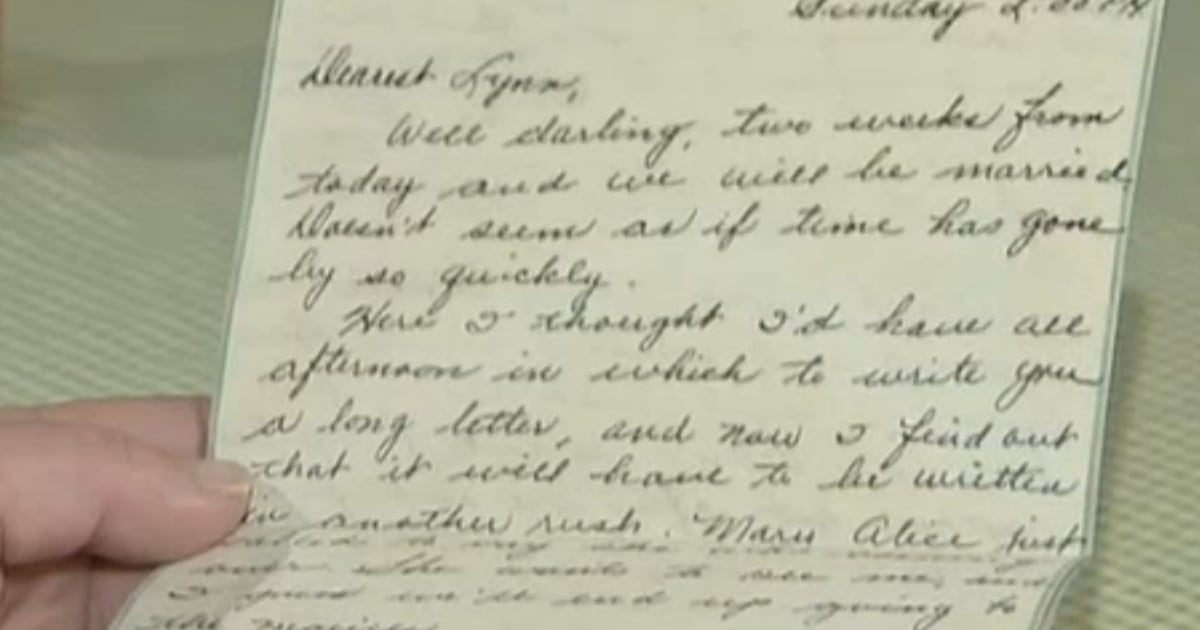 Sunday 2:30 PM
Dearest Lynn,
Well darling, two weeks from
today and we will be married.
Doesn't seem as if time has gone
by so quickly.
Here I thought I'd have all
afternoon in which to write you
a long letter, and now I find out
that it will have to be written
in another rush. Mary Alice just
called to say she was coming
over. She wants to see me, and
I guess we'll end up going to
the movies.